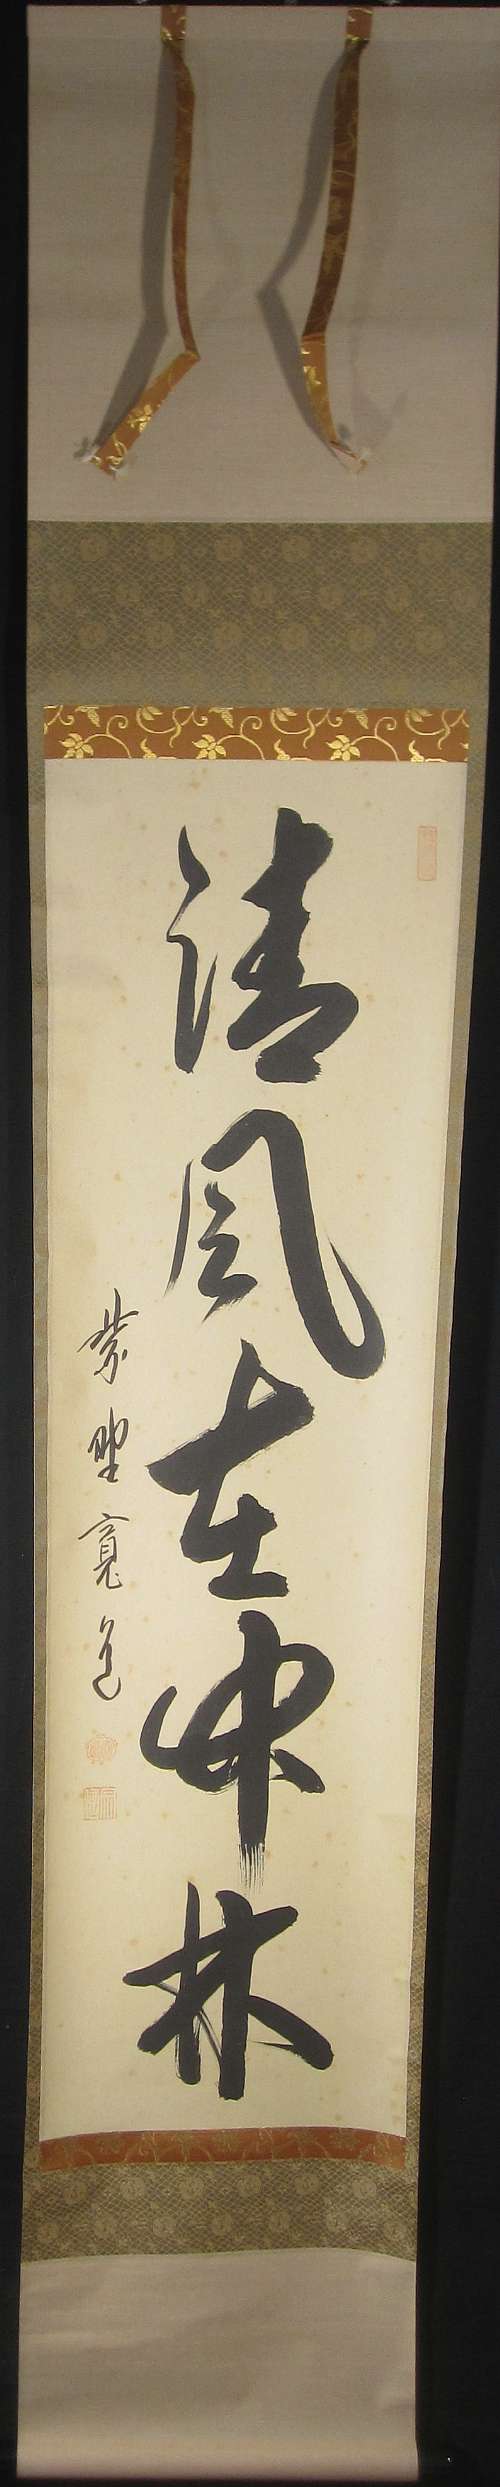 清風在林
紫野寛道